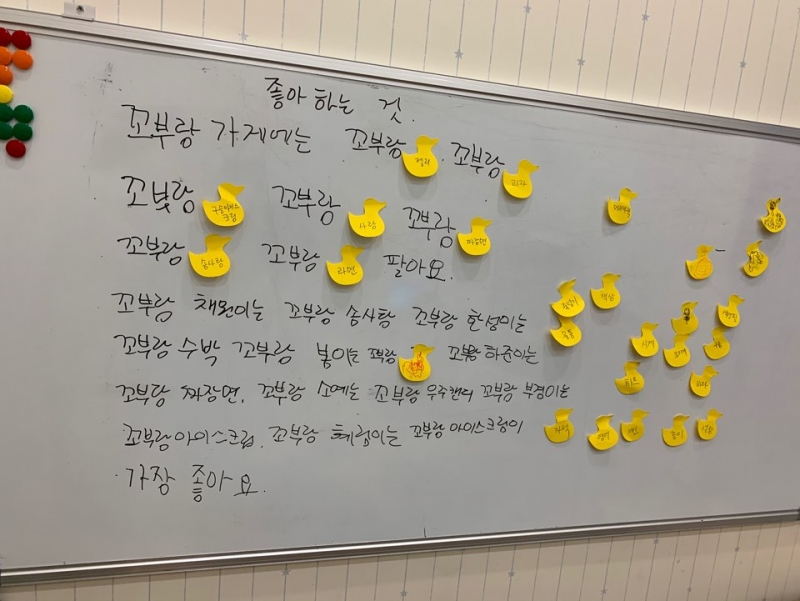 좋아하는 것.
꼬부랑 가게에는 꼬부랑 젤리 꼬부랑 피자
꼬부랑 구슬아이스크림 꼬부랑 사탕 꼬부랑 짜장면
꼬부랑 솜사탕 꼬부랑 라면 팔아요.
꼬부랑 채원이는 꼬부랑 솜사탕 꼬부랑 한성이는
꼬부랑 수박 꼬부랑 봄이는 꼬부랑 꼬부랑 하준이는
꼬부랑 짜장면, 꼬부랑 소예는 꼬부랑 우주캔디 꼬부랑 부겸이는
꼬부랑 아이스크림, 꼬부랑 채림이는 꼬부랑 아이스크림이
가장 좋아요.
책상
시계
하마
종이